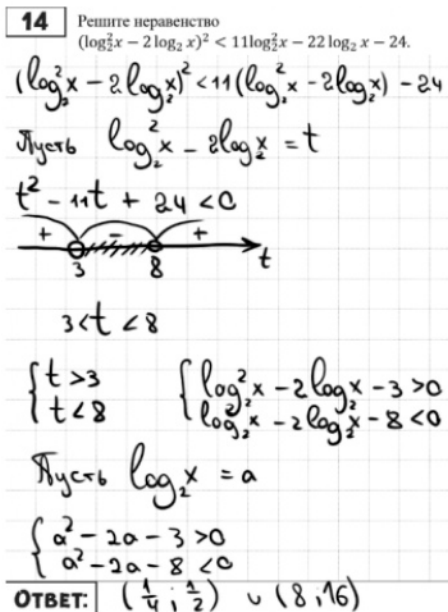 14 Решите неравенство
(log₂²x − 2 log₂ x)² < 11log₂²x − 22 log₂ x − 24.
(log₂²x − 2log₂x)² < 11(log₂²x − 2log₂x) − 24
Пусть log₂²x − 2log₂x = t
t² − 11t + 24 < 0
+ − +
3 8 t
3 < t < 8
{ t > 3 { log₂²x − 2log₂x − 3 > 0
{ t < 8 { log₂²x − 2log₂x − 8 < 0
Пусть log₂x = a
{ a² − 2a − 3 > 0
{ a² − 2a − 8 < 0
ОТВЕТ: (1/4 ; 1/2) ∪ (8 ; 16)